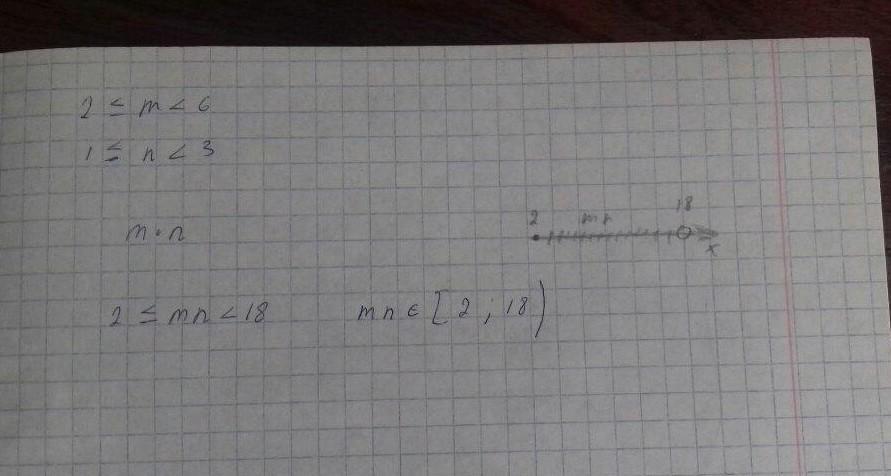 2 ≤ m < 6
1 ≤ n < 3
m · n
2 mn 18
x
2 ≤ mn < 18 mn ∈ [2 ; 18)